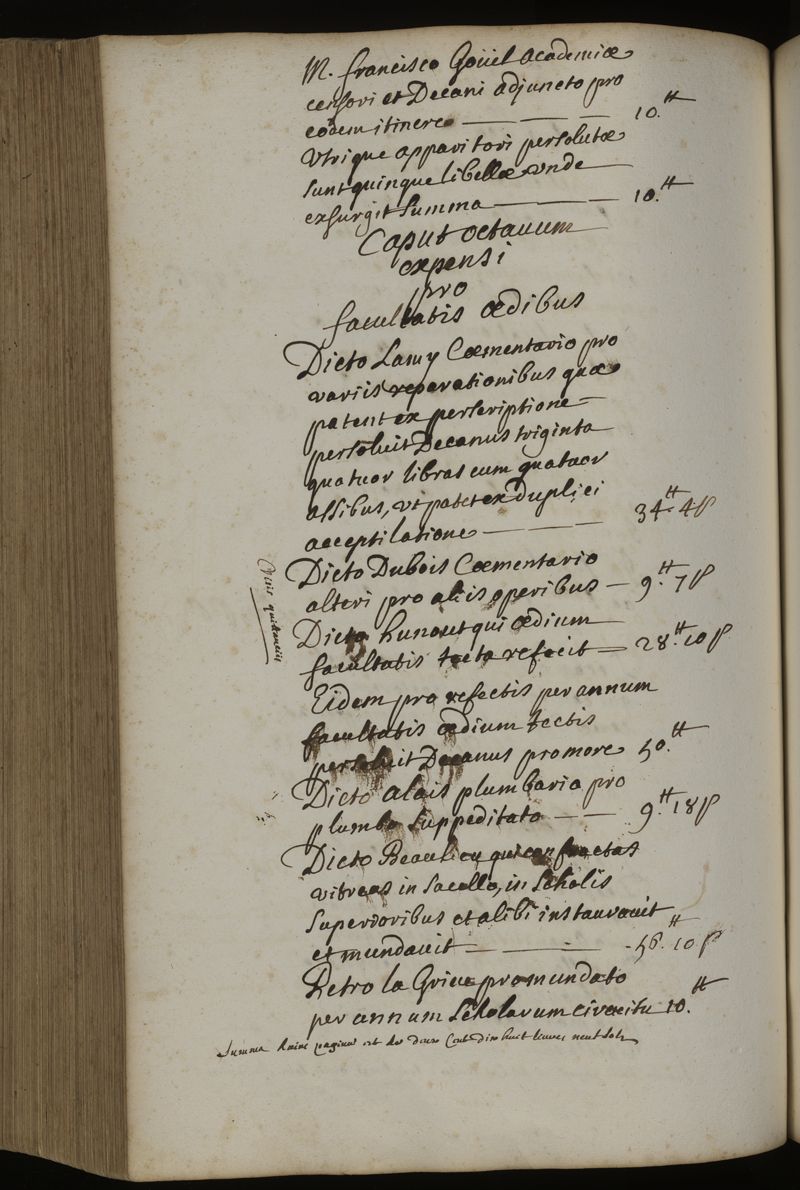 M. francisco Goüel Academiæ
censori et Decani adjuncto pro
eodem itinere — — — 10.tt
Vtrique apparitori persolutæ
sunt quinque libellæ vnde
exsurgit summa — — — 10.tt
Caput octauum
expensi
pro
facultatis ædibus
Dicto Lamy Cæmentario pro
variis reparationibus quæ
patent ex perscriptione
persoluit Decanus triginta
quatuor libras cum quatuor
assibus, vt patet ex duplici
acceptilatione — — — 34tt 4ß
Dicto Dubois Cæmentario
alteri pro aliis operibus — 9.tt 7ß
quittantiis
Dicto hunout qui ædium
facultatis tecta refecit — 28.tt 10ß
Eidem pro refectis per annum
facultatis ædium tectis
persoluit Decanus pro more 50.tt
Dicto alais plumbario pro
plumbo suppeditato — — 9.tt 18ß
Dicto Beaulieu qui confractas
vitreas in sacello, in scholis
superioribus et alibi instaurauit
et mundauit — — - 56.tt 10ß
Petro la Griue pro mundato
per annum scholarum circuitu 10.tt
Summa paginæ est de deux Cent dix huit liures neuf sols